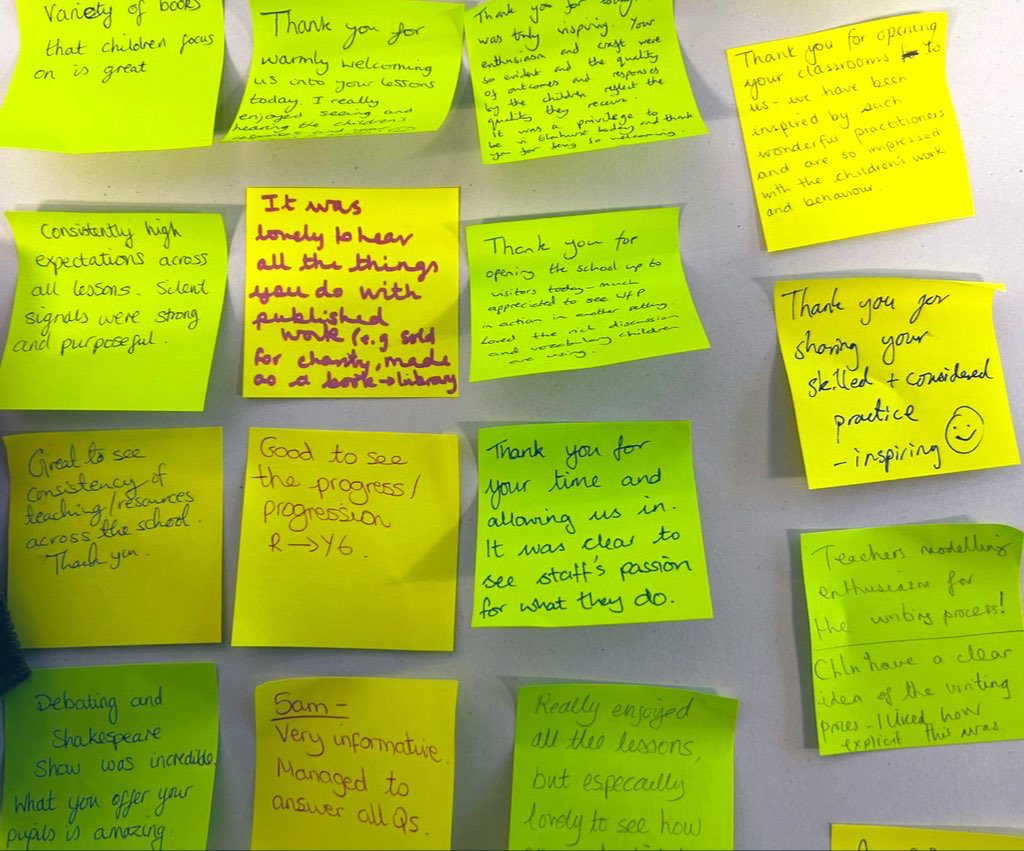 Variety of books
that children focus
on is great
Thank you for
warmly welcoming
us into your lessons
today. I really
enjoyed seeing and
hearing the children's
Thank you for today. It
was truly inspiring. Your
enthusiasm and craft were
so evident and the quality
of outcomes and responses
by the children reflect the
quality they receive.
It was a privilege to
be in Elmhurst today and thank
you for being so welcoming.
Thank you for opening
your classrooms to
us - we have been
inspired by such
wonderful practitioners
and are so impressed
with the children's work
and behaviour.
Consistently high
expectations across
all lessons. Silent
signals were strong
and purposeful.
It was
lovely to hear
all the things
you do with
published
work (e.g sold
for charity, made
as a book → library
Thank you for
opening the school up to
visitors today - much
appreciated to see WfP
in action in another setting.
Loved the rich discussion
and vocabulary children
are using.
Thank you for
sharing your
skilled + considered
practice
- inspiring
Great to see
consistency of
teaching/resources
across the school.
Thank you.
Good to see
the progress/
progression
R → Y6.
Thank you for
your time and
allowing us in.
It was clear to
see staff's passion
for what they do.
Teachers modelling
enthusiasm for
the writing process!
Chln have a clear
idea of the writing
proces - I liked how
explicit this was.
Debating and
Shakespeare
Show was incredible.
What you offer your
pupils is amazing.
Sam -
Very informative.
Managed to
answer all Qs.
Really enjoyed
all the lessons,
but especailly
lovely to see how